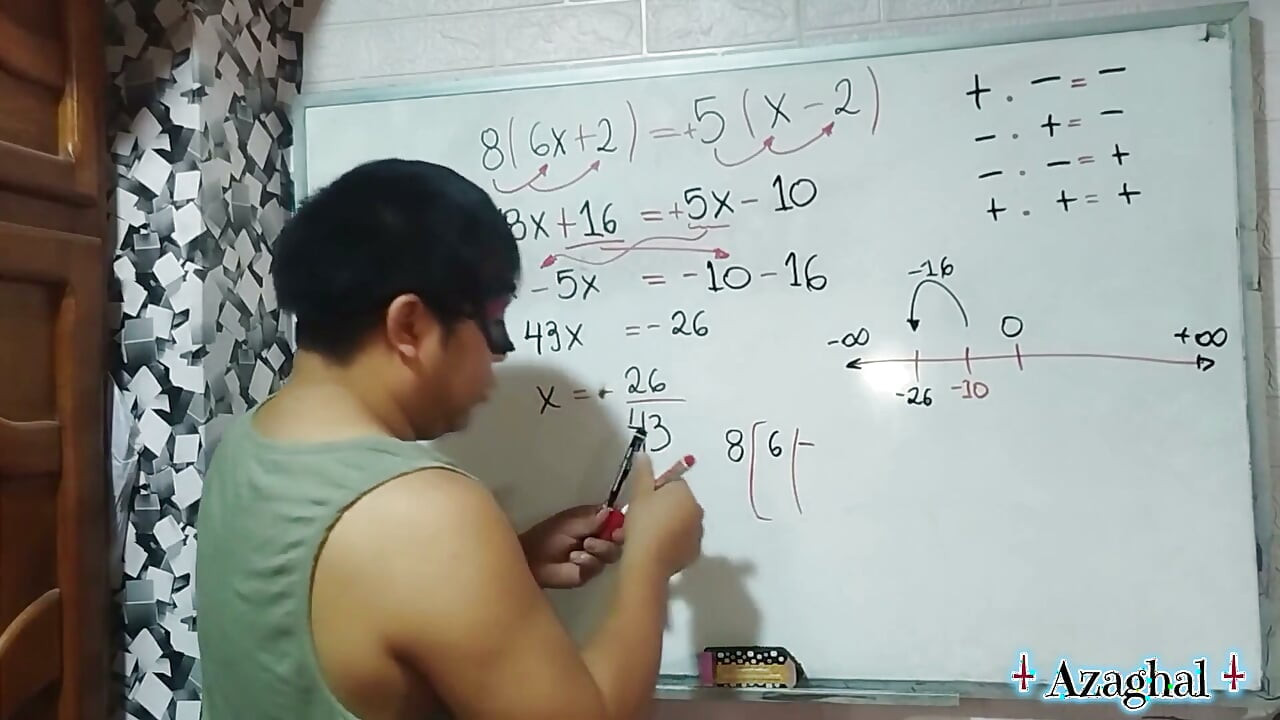 8(6x+2)=+5(x-2)
8x+16=+5x-10
-5x=-10-16
43x=-26
x=-26/43
8[6(-
+.-=-
-.+=-
-.-=+
+.+=+
-16
-∞ 0 +∞
-26 -10
Azaghal